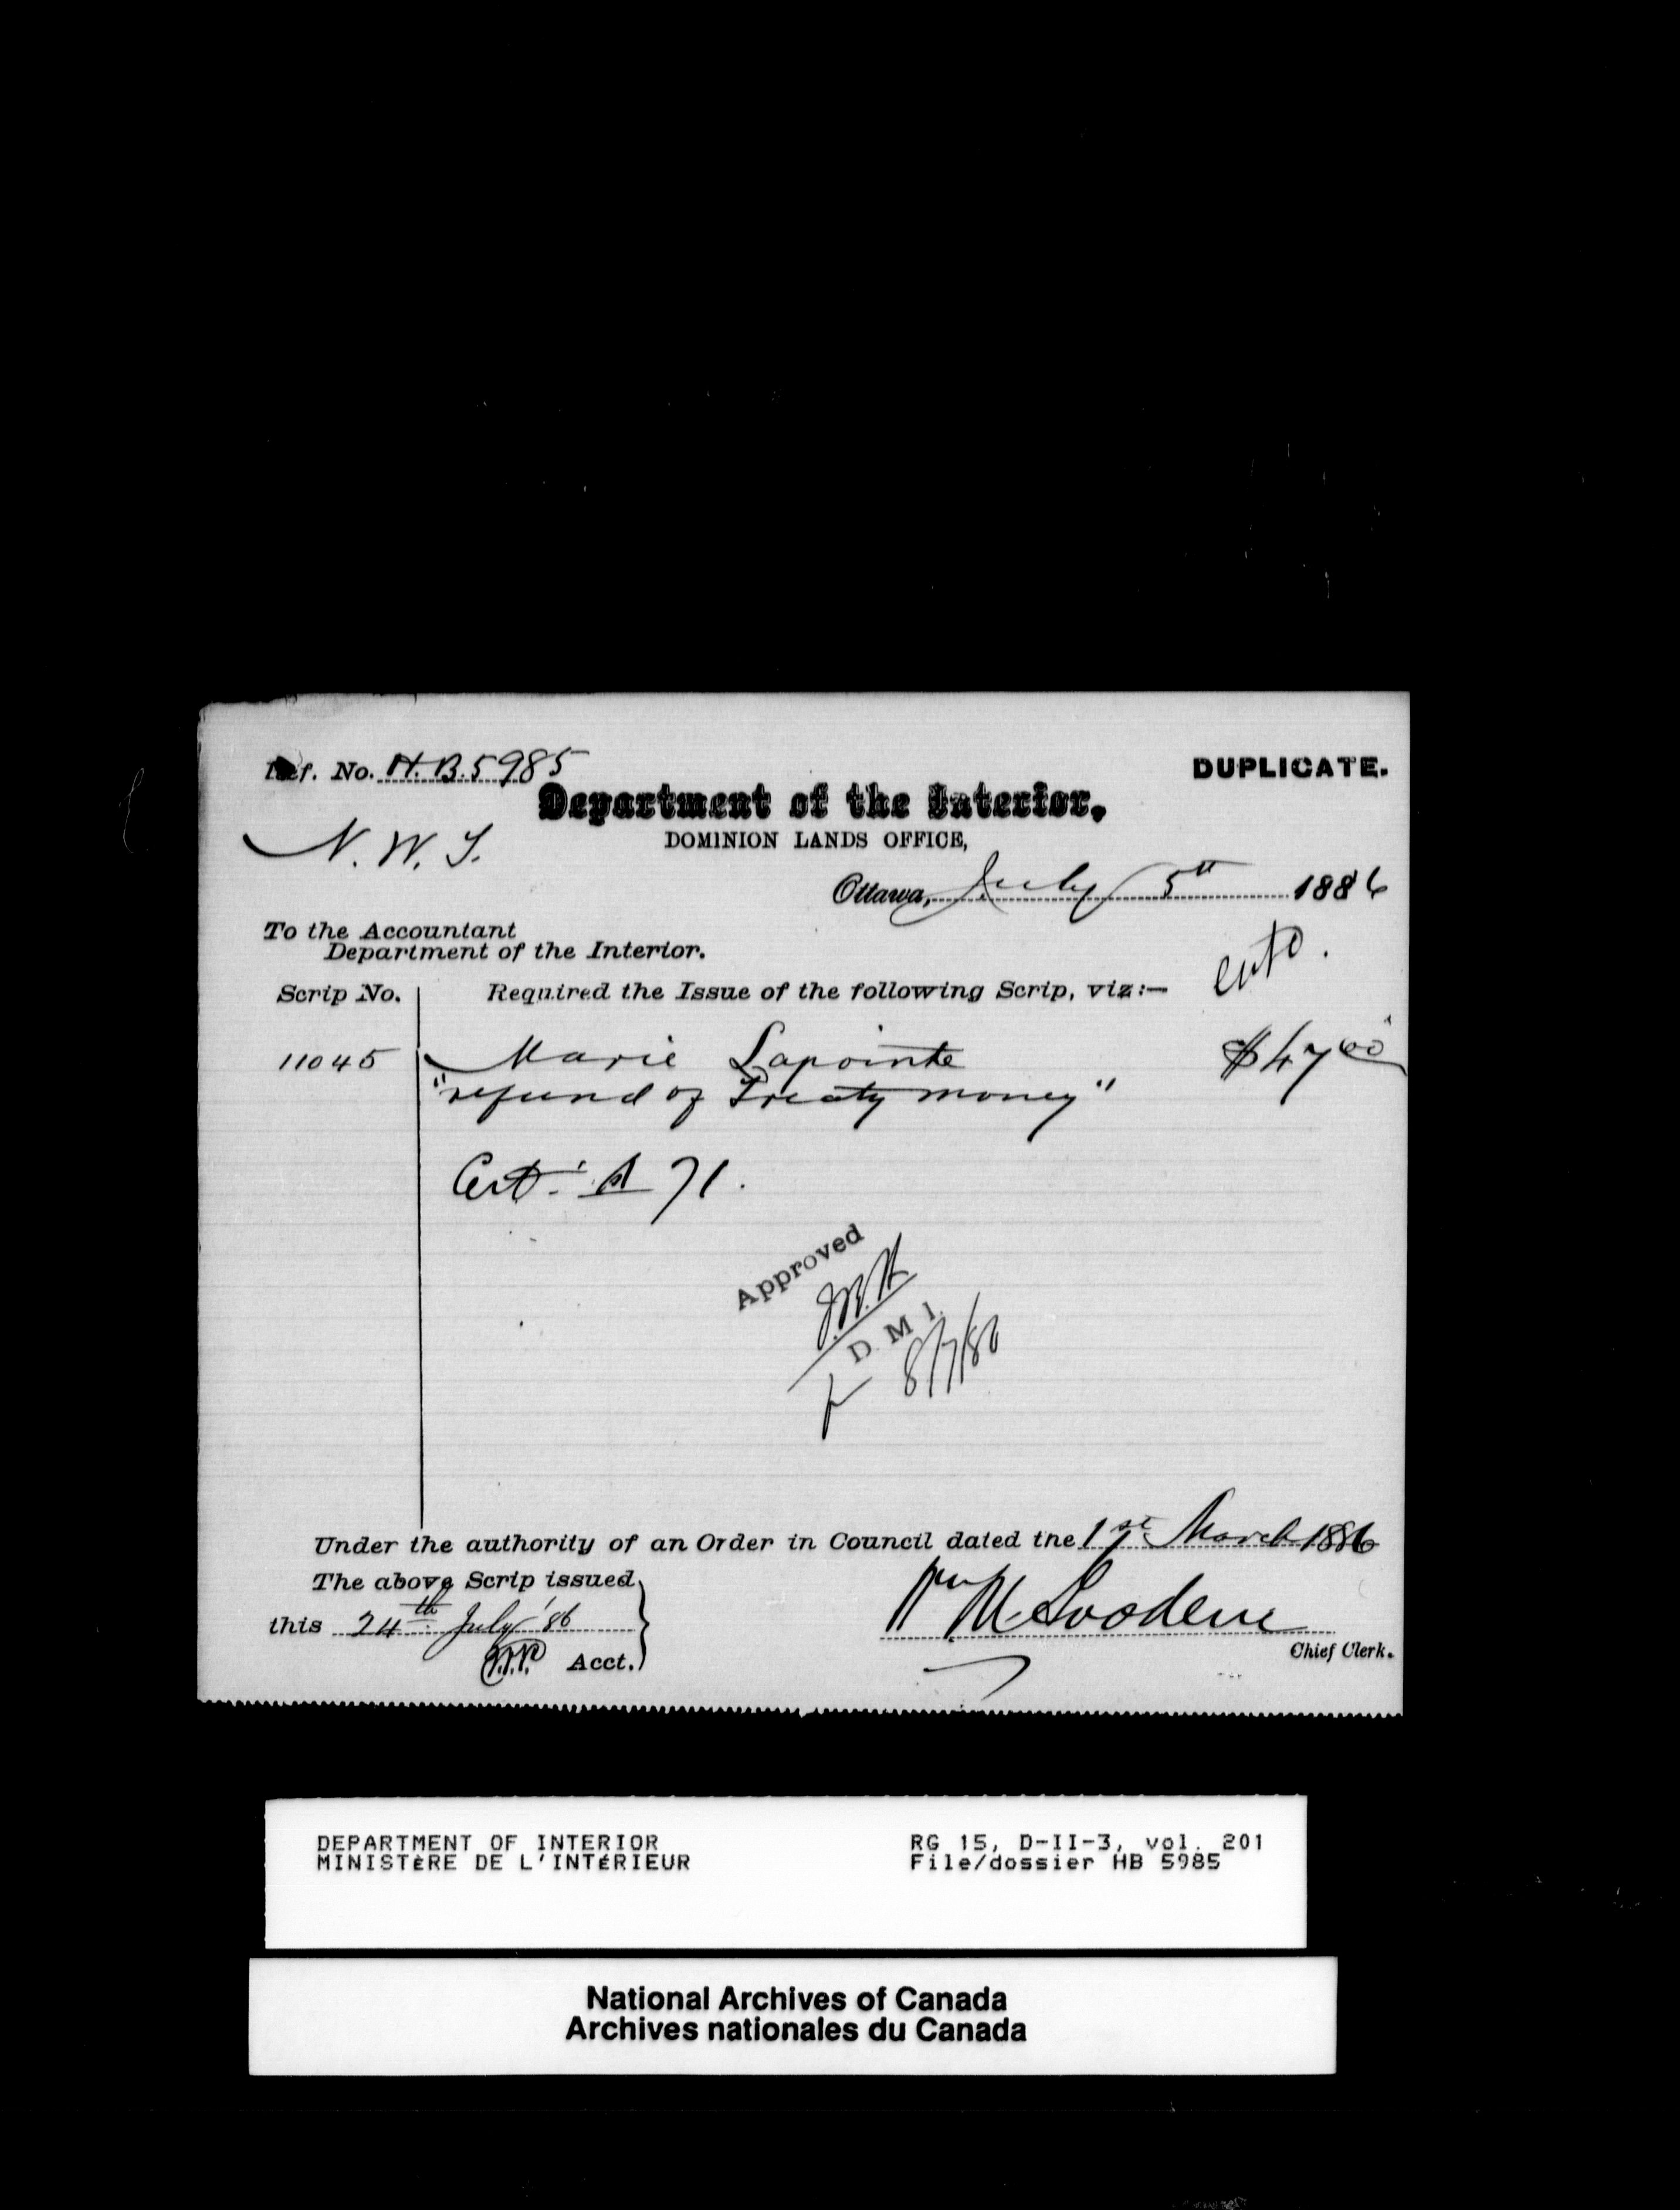 Ref. No. H.B. 5985
DUPLICATE.
Department of the Interior,
N. W. T.
DOMINION LANDS OFFICE,
Ottawa, July 5th 1886
To the Accountant
Department of the Interior.
Scrip No.
Required the Issue of the following Scrip, viz:—
11045
Marie Lapointe
$47 00
"refund of Treaty money"
Cert. A 71.
Approved
D. M. I.
8/7/86
Under the authority of an Order in Council dated the 1st March 1886
The above Scrip issued
this 24th July '86
Acct.
Chief Clerk.
DEPARTMENT OF INTERIOR
MINISTÈRE DE L'INTÉRIEUR
RG 15, D-II-3, vol. 201
File/dossier HB 5985
National Archives of Canada
Archives nationales du Canada